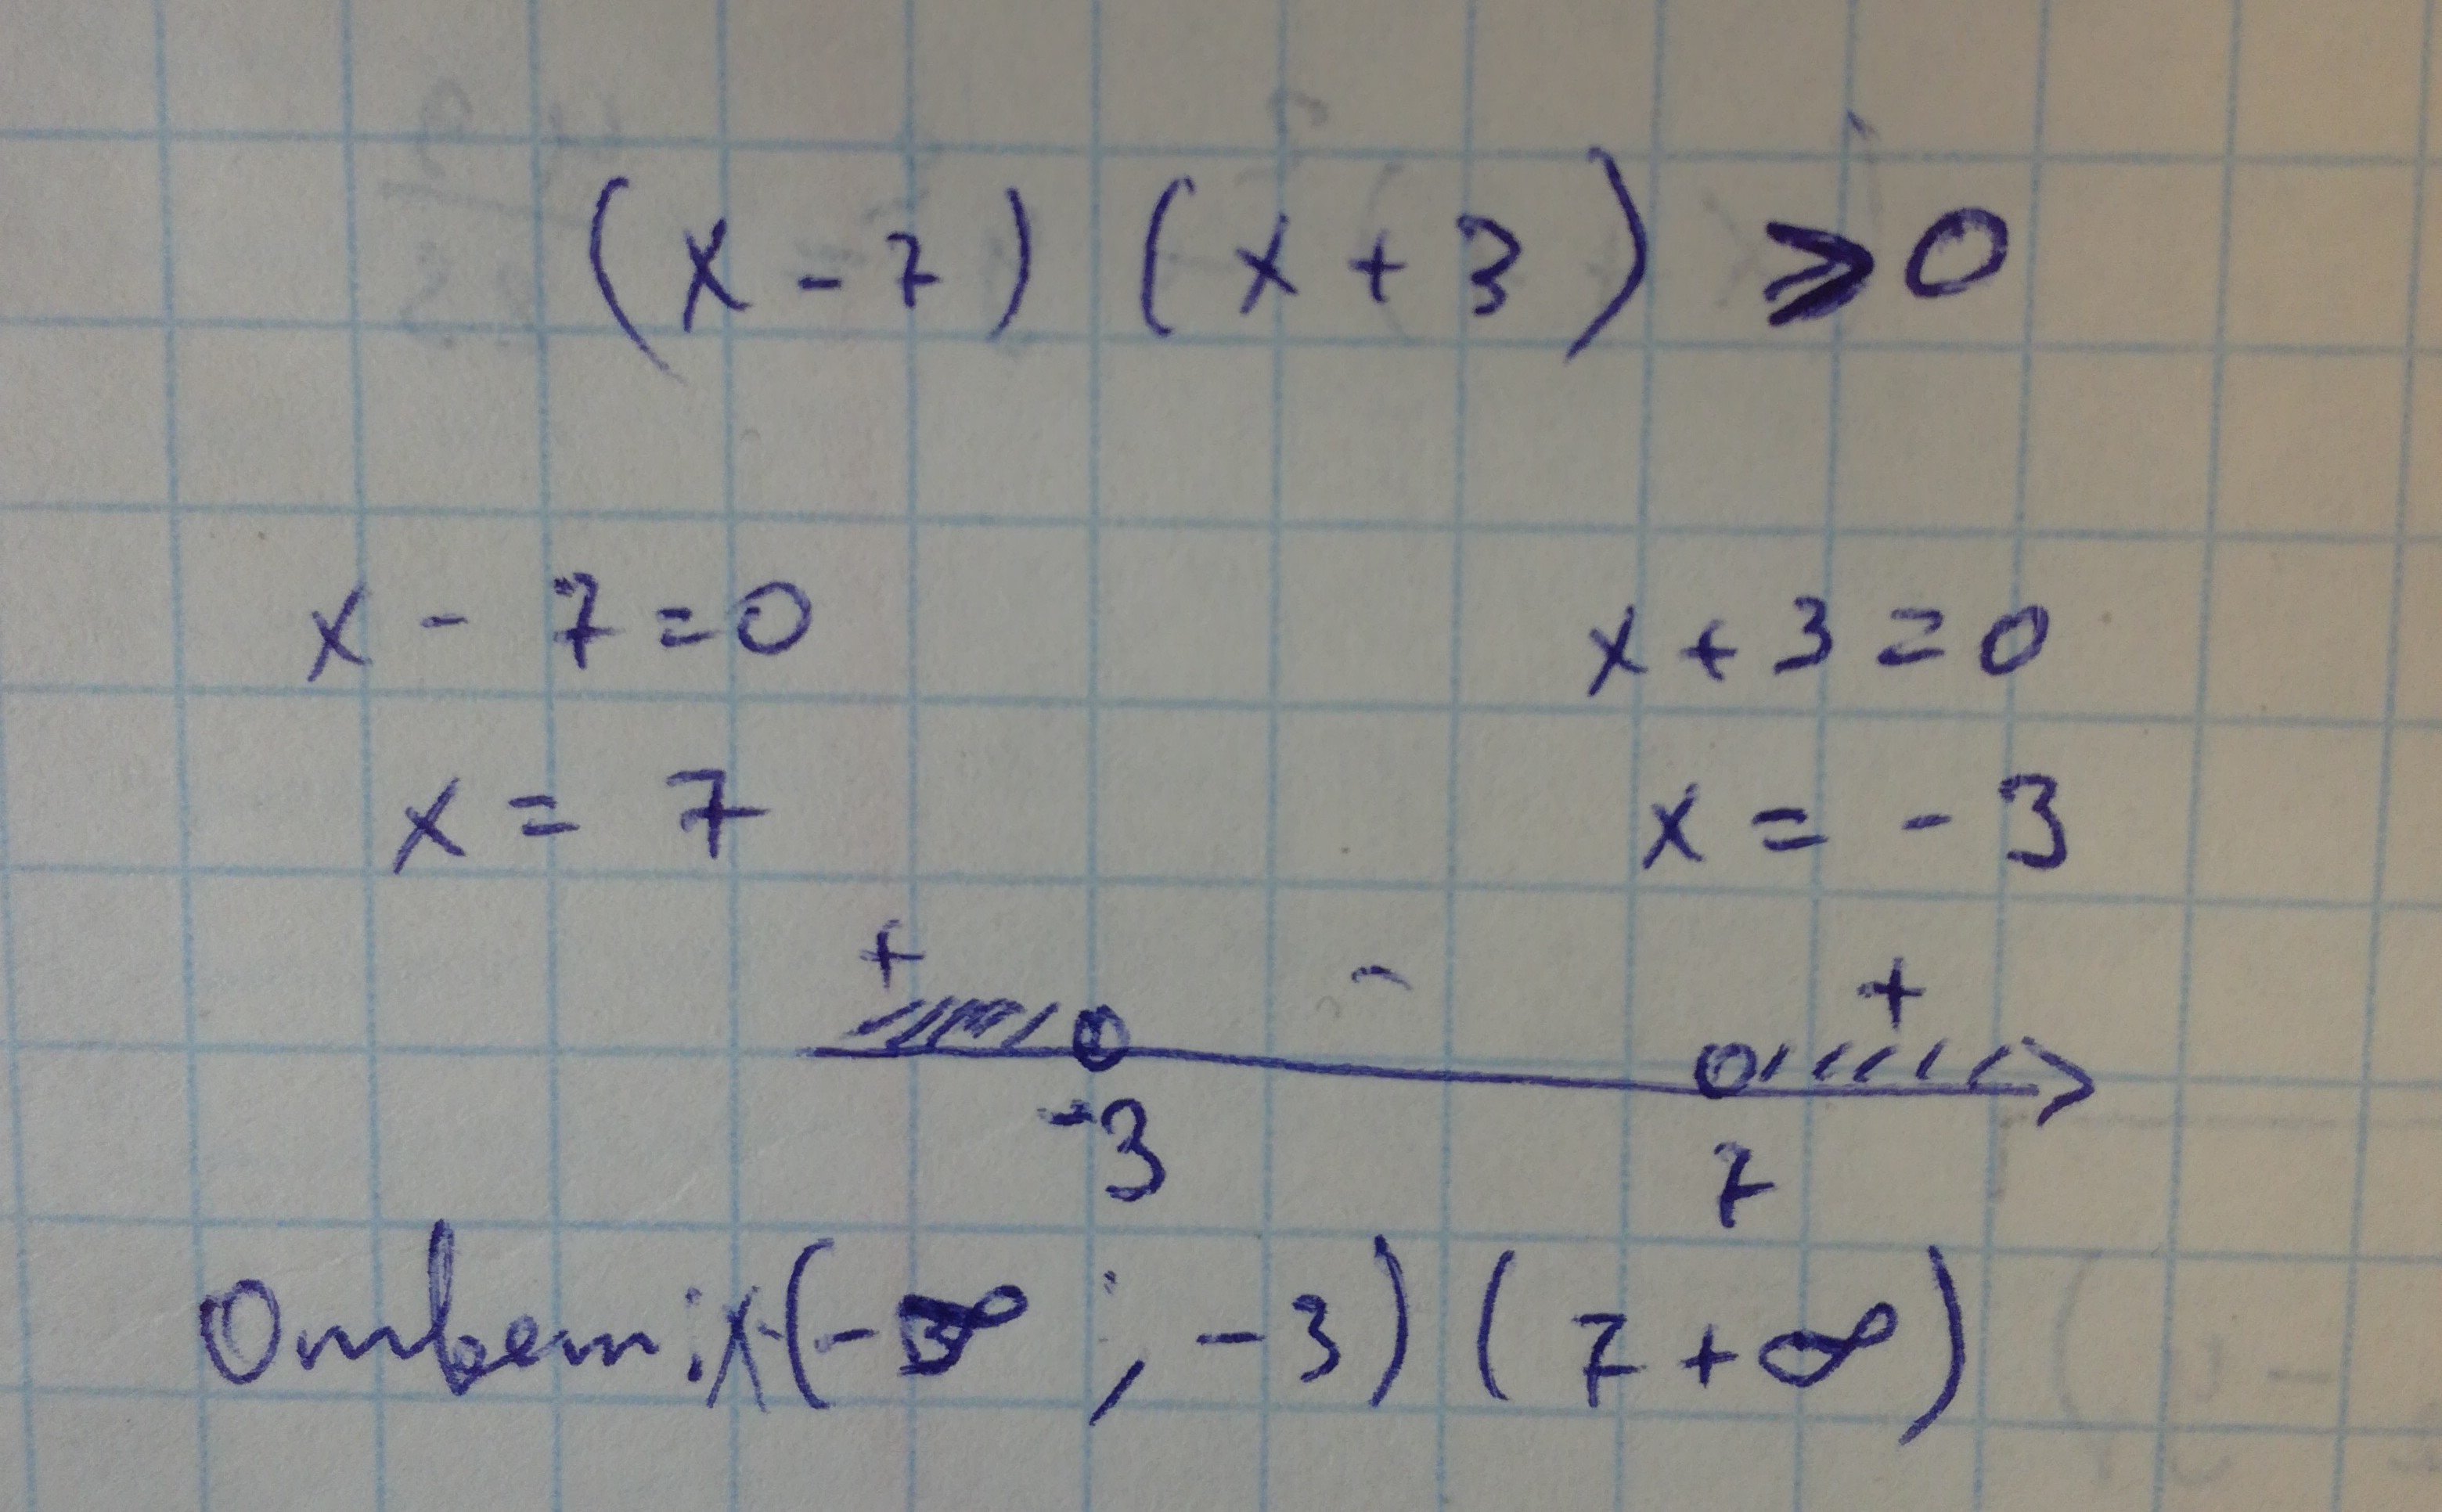 (x - 7) (x + 3) ⩾ 0
x - 7 = 0 x + 3 = 0
x = 7 x = - 3
+ - +
-3 7
Ответ: x (-∞ ; -3) (7 + ∞)